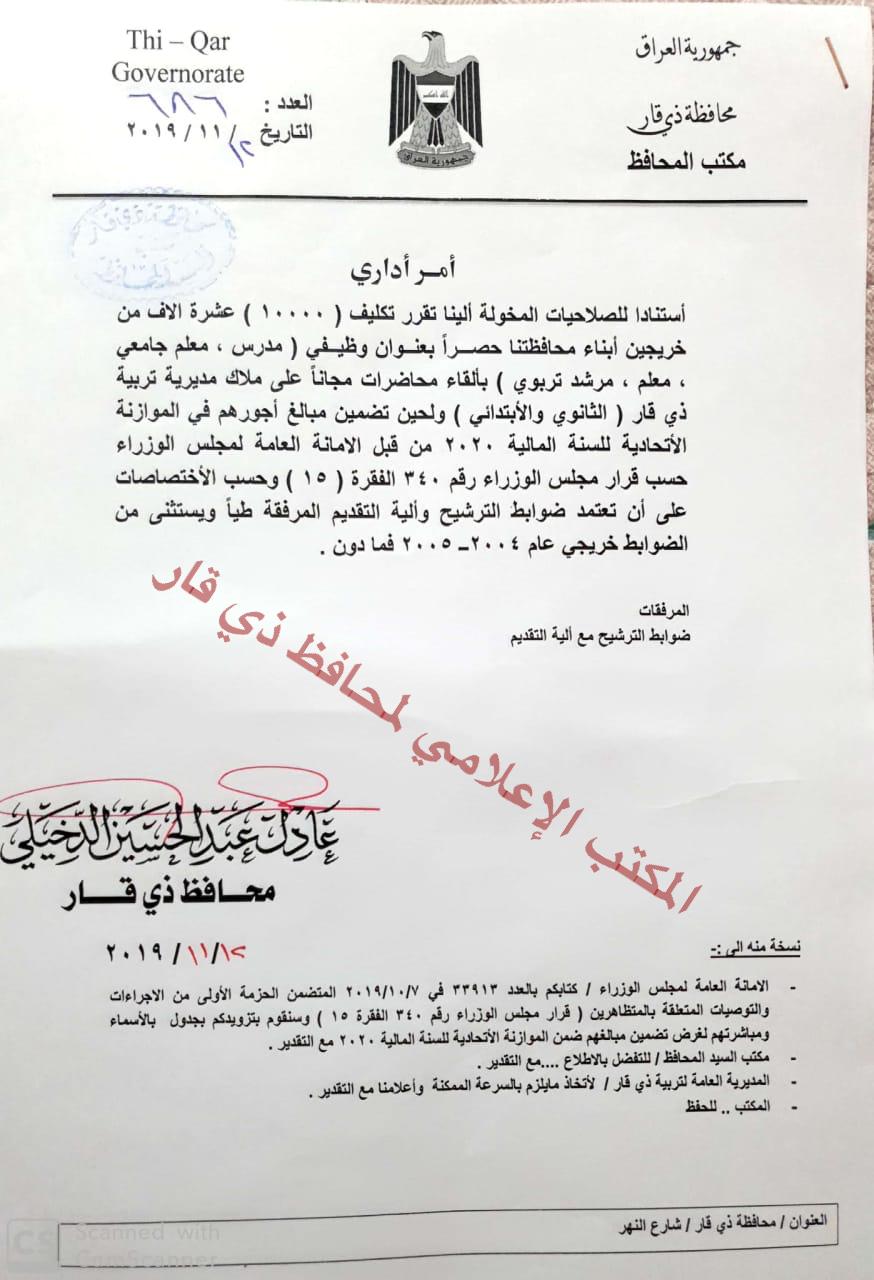 Thi – Qar
Governorate
العدد : ٦٨٦
التاريخ ١٢/ ١١ / ٢٠١٩
جمهورية العراق
محافظة ذي قار
مكتب المحافظ
جمهورية العراق
أمر أداري
أستنادا للصلاحيات المخولة ألينا تقرر تكليف ( ١٠٠٠٠ ) عشرة الاف من
خريجين أبناء محافظتنا حصراً بعنوان وظيفي ( مدرس ، معلم جامعي
، معلم ، مرشد تربوي ) بألقاء محاضرات مجاناً على ملاك مديرية تربية
ذي قار ( الثانوي والأبتدائي ) ولحين تضمين مبالغ أجورهم في الموازنة
الأتحادية للسنة المالية ٢٠٢٠ من قبل الامانة العامة لمجلس الوزراء
حسب قرار مجلس الوزراء رقم ٣٤٠ الفقرة ( ١٥ ) وحسب الأختصاصات
على أن تعتمد ضوابط الترشيح وألية التقديم المرفقة طياً ويستثنى من
الضوابط خريجي عام ٢٠٠٤ – ٢٠٠٥ فما دون .
المرفقات
ضوابط الترشيح مع ألية التقديم
المكتب الإعلامي لمحافظ ذي قار
عادل عبد الحسين الدخيلي
محافظ ذي قار
١٢/ ١١ / ٢٠١٩
نسخة منه الى :-
- الامانة العامة لمجلس الوزراء / كتابكم بالعدد ٣٣٩١٣ في ٢٠١٩/١٠/٧ المتضمن الحزمة الأولى من الاجراءات
والتوصيات المتعلقة بالمتظاهرين ( قرار مجلس الوزراء رقم ٣٤٠ الفقرة ١٥ ) وسنقوم بتزويدكم بجدول بالأسماء
ومباشرتهم لغرض تضمين مبالغهم ضمن الموازنة الأتحادية للسنة المالية ٢٠٢٠ مع التقدير .
- مكتب السيد المحافظ / للتفضل بالاطلاع ....مع التقدير .
- المديرية العامة لتربية ذي قار / لأتخاذ مايلزم بالسرعة الممكنة وأعلامنا مع التقدير .
- المكتب .. للحفظ
العنوان / محافظة ذي قار / شارع النهر
CS Scanned with
CamScanner